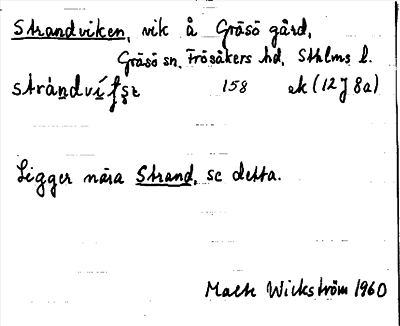 Strandviken, vik å Gräsö gård,
Gräsö sn, Frösåkers hd, Sthlms l.
158 ek (12J 8a)
Ligger nära Strand, se detta.
Mats Wickström 1960